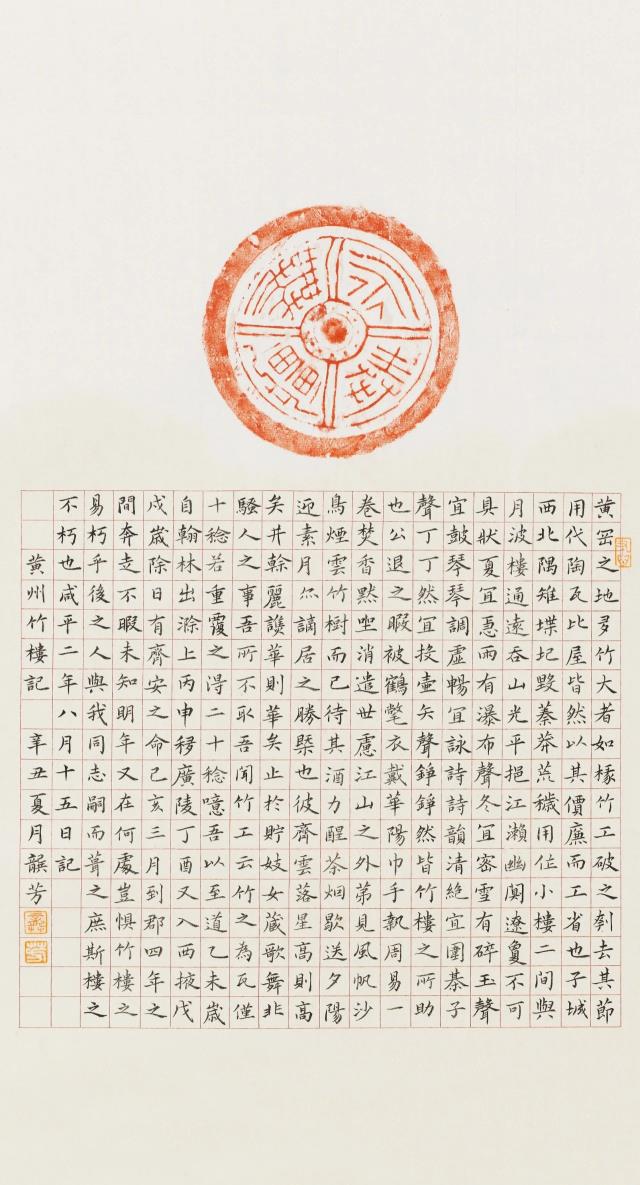 黄岡之地多竹大者如椽竹工破之刳去其節
用代陶瓦比屋皆然以其價廉而工省也子城
西北隅雉堞圮毀蓁莽荒穢用作小樓二間與
月波樓通遠吞山光平挹江瀨幽闃遼夐不可
具狀夏宜急雨有瀑布聲冬宜密雪有碎玉聲
宜鼓琴琴調虛暢宜詠詩詩韻清絕宜圍棊子
聲丁丁然宜投壺矢聲錚錚然皆竹樓之所助
也公退之暇被鶴氅衣戴華陽巾手執周易一
卷焚香默坐消遣世慮江山之外第見風帆沙
鳥煙雲竹樹而已待其酒力醒茶烟歇送夕陽
迎素月亦謫居之勝槩也彼齊雲落星高則高
矣井幹麗譙華則華矣止於貯妓女藏歌舞非
騷人之事吾所不取吾聞竹工云竹之為瓦僅
十稔若重覆之得二十稔噫吾以至道乙未歲
自翰林出滁上丙申移廣陵丁酉又入西掖戊
戌歲除日有齊安之命己亥三月到郡四年之
間奔走不暇未知明年又在何處豈懼竹樓之
易朽乎後之人與我同志嗣而葺之庶斯樓之
不朽也咸平二年八月十五日記
黄州竹樓記 辛丑夏月芳